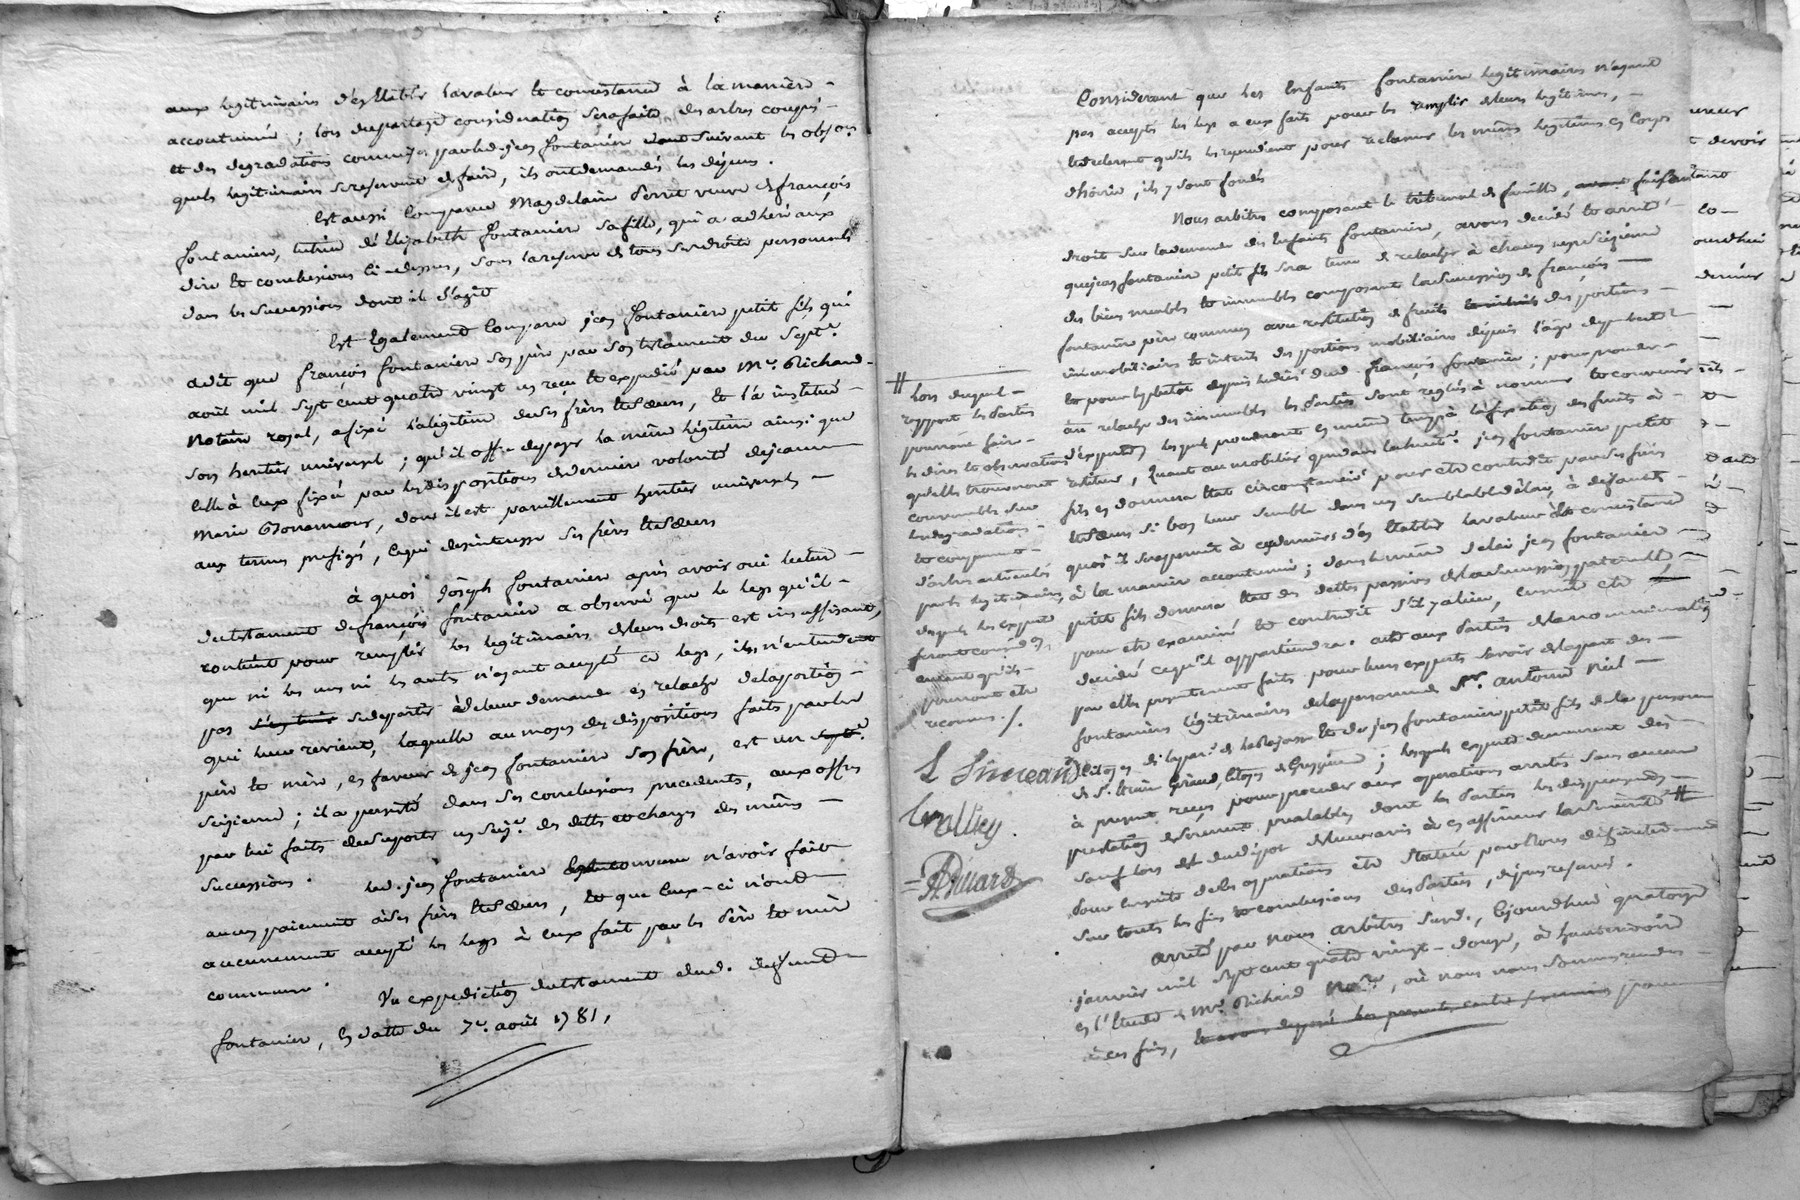 aux legitimaires d'establir la valeur et consistance à la manière
accoutumée ; lors du partage consideration sera faite des arbres coupés
et des degradations commises par led. jean fontanier suivant les obser
quels legitimaires se reservent de faire, ils ont demandés les dépens.
Est aussi Comparue Magdelaine Perret veuve de françois
fontanier, tutrice d'Elizabeth fontanier sa fille, qui a adhéré aux
dire et conclusions ci-dessus, sous la reserve de tous ses droits personnels
dans les successions dont il s'agit
Est Egalement Comparu jean fontanier petit fils qui
a dit que françois fontanier son père par son testament du sept.
août mil sept cent quatre vingt un reçu et expedié par Mr. Richard
Notaire royal, a fixé la legitime de ses frères et sœurs, et l'a institué
son heritier universel ; qu'il offre de payer la même legitime ainsi que
celle à eux fixée par les dispositions de dernière volonté de jeanne
Marie Bonnamour, dont il est pareillement heritier universel
aux termes prefigés, ce qui desinteresse ses frères et sœurs
à quoi Joseph fontanier après avoir oui lecture
du testament de françois fontanier a observé que le legs qu'il
contient pour remplir les legitimaires de leurs droits est insuffisant,
que ni les uns ni les autres n'ayant accepté ce legs, ils n'entendent
pas se departir de leur demande en relache de la portion
qui leur revient, laquelle au moyen des dispositions faites par les
père et mère, en faveur de jean fontanier son frère, est un
seizieme ; il a persisté dans ses conclusions precedentes, aux offres
par lui faites de suporter un seiz.e des dettes et charges des mêmes
successions.
led. jean fontanier convenu n'avoir fait
aucun paiement à ses frères et sœurs, et que ceux-ci n'ont
aucunement accepté les legs à eux fait par les père et mère
communs.
Vu expedition du testament dud. defunt
fontanier, en datte du 7e. août 1781,
Considerant que les Enfants fontanier legitimaires n'ayant
pas accepté les legs a eux faits pour les remplir de leurs legitimes,
et declarant qu'ils les repudient pour reclamer les mêmes legitimes en Corps
d'hoirie, ils y sont fondés
Nous arbitres composant le tribunal de famille, faisant
droit sur la demande des Enfants fontanier, avons decidé et arreté
que jean fontanier petit fils sera tenu de relacher à chacun un seizieme
des biens meubles et immeubles composant la succession de françois
fontanier père commun avec restitution de fruits des portions
immobiliaires et interets des portions mobiliaires depuis
depuis le decès dud. françois fontanier ; pour proceder
au relache des immeubles les parties sont reglés à nommer et convenir
d'experts, lesquels procederont en même temps à la fixation des fruits à
restituer, Quant au mobilier jean fontanier petit
fils en donnera Etat circonstancié pour etre contredit par ses frères
et sœurs si bon leur semble dans un semblable delai, à defaut
quoi il sera permis à ces derniers d'en establir la valeur et consistance
à la manière accoutumée ; dans le même delai jean fontanier
petit fils donnera Etat des dettes passives de la succession paternelle,
pour etre examiné et contredit s'il y a lieu, ensuite etre
decidé ce qu'il appartiendra. acte aux parties de la nomination
par elles presentement faite pour leurs experts savoir de la part des
fontaniers legitimaires de la personne de Sr. antoine Niel
et de jean fontanier petit fils de la personne
de Sr. Giraud, Citoyen ; lesquels experts demeurent dès
à present reçus pour proceder aux operations arretés sans aucune
prestation de serment prealable, dont les parties les dispensent
sauf lors du depot de leur avis à en affirmer la sincerité #
Pour ensuite de les operations etre statué par Nous definitivement
sur toutes les fins et conclusions des parties, depens reservés.
arreté par nous arbitres susd., Cejourd'hui quatorze
janvier mil sept cent quatre vingt-douze, à
en l'Etude de Mr. Richard No.re, où nous nous sommes rendus
à ces fins,
# lors duquel
rapport les parties
pourront faire
les dires et observations
qu'elles trouveront
convenables sur
les degradations
et coupement
d'arbres articulés
par les legitimaires,
desquels les experts
feront
autant qu'ils
pourront etre
reconnus./.